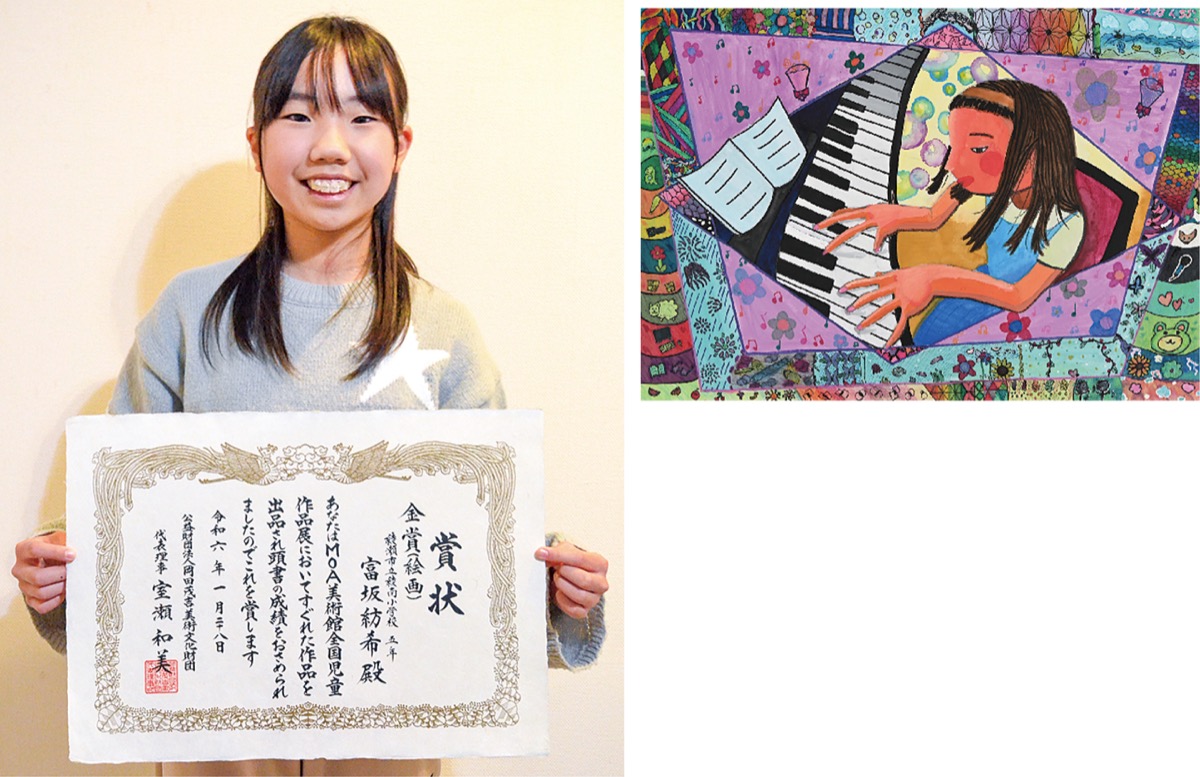 賞状
金賞(絵画)
綾瀬市立綾南小学校 五年
富坂紡希殿
あなたはMOA美術館全国児童
作品展においてすぐれた作品を
出品され頭書の成績をおさめられ
ましたのでこれを賞します
令和六年一月二十八日
公益財団法人岡田茂吉美術文化財団
代表理事 室瀬和美